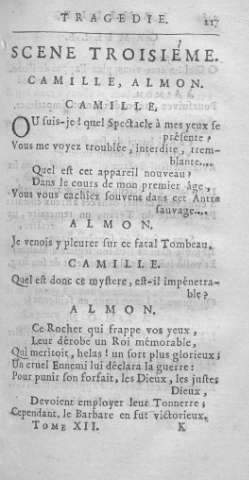 TRAGEDIE. 217
SCENE TROISIÉME.
CAMILLE, ALMON.
CAMILLE.
OU suis-je! quel Spectacle à mes yeux se
présente?
Vous me voyez troublée, interdite, trem-
blante....
Quel est cet appareil nouveau?
Dans le cours de mon premier âge,
Vous vous cachiez souvent dans cet Antre
sauvage....
ALMON.
Je venois y pleurer sur ce fatal Tombeau.
CAMILLE.
Quel est donc ce mystere, est-il impénetra-
ble?
ALMON.
Ce Rocher qui frappe vos yeux,
Leur dérobe un Roi mémorable,
Qui meritoit, helas! un sort plus glorieux;
Un cruel Ennemi lui déclara la guerre:
Pour punir son forfait, les Dieux, les justes
Dieux,
Devoient employer leur Tonnerre;
Cependant, le Barbare en fut victorieux.
TOME XII. K